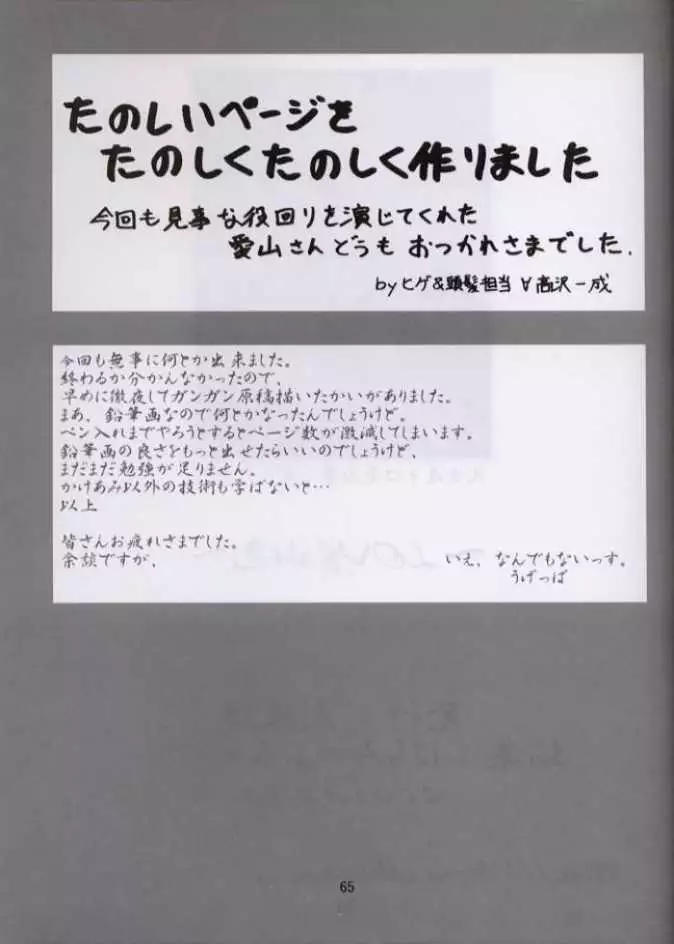 たのしいページを
たのしくたのしく作りました
今回も見事な役回りを演じてくれた
愛山さんどうも おつかれさまでした.
by ヒゲ&頭髪担当 ∀高沢一成
今回も無事に何とか出来ました。
終わるか分かんなかったので、
早めに徹夜してガンガン原稿描いたかいがありました。
まあ、鉛筆画なので何とかなったんでしょうけど。
ペン入れまでやろうとするとページ数が激減してしまいます。
鉛筆画の良さをもっと出せたらいいのでしょうけど、
まだまだ勉強が足りません。
かけあみ以外の技術も学ばないと…
以上
皆さんお疲れさまでした。
余談ですが、 いえ、なんでもないっす。
うげっぱ
65